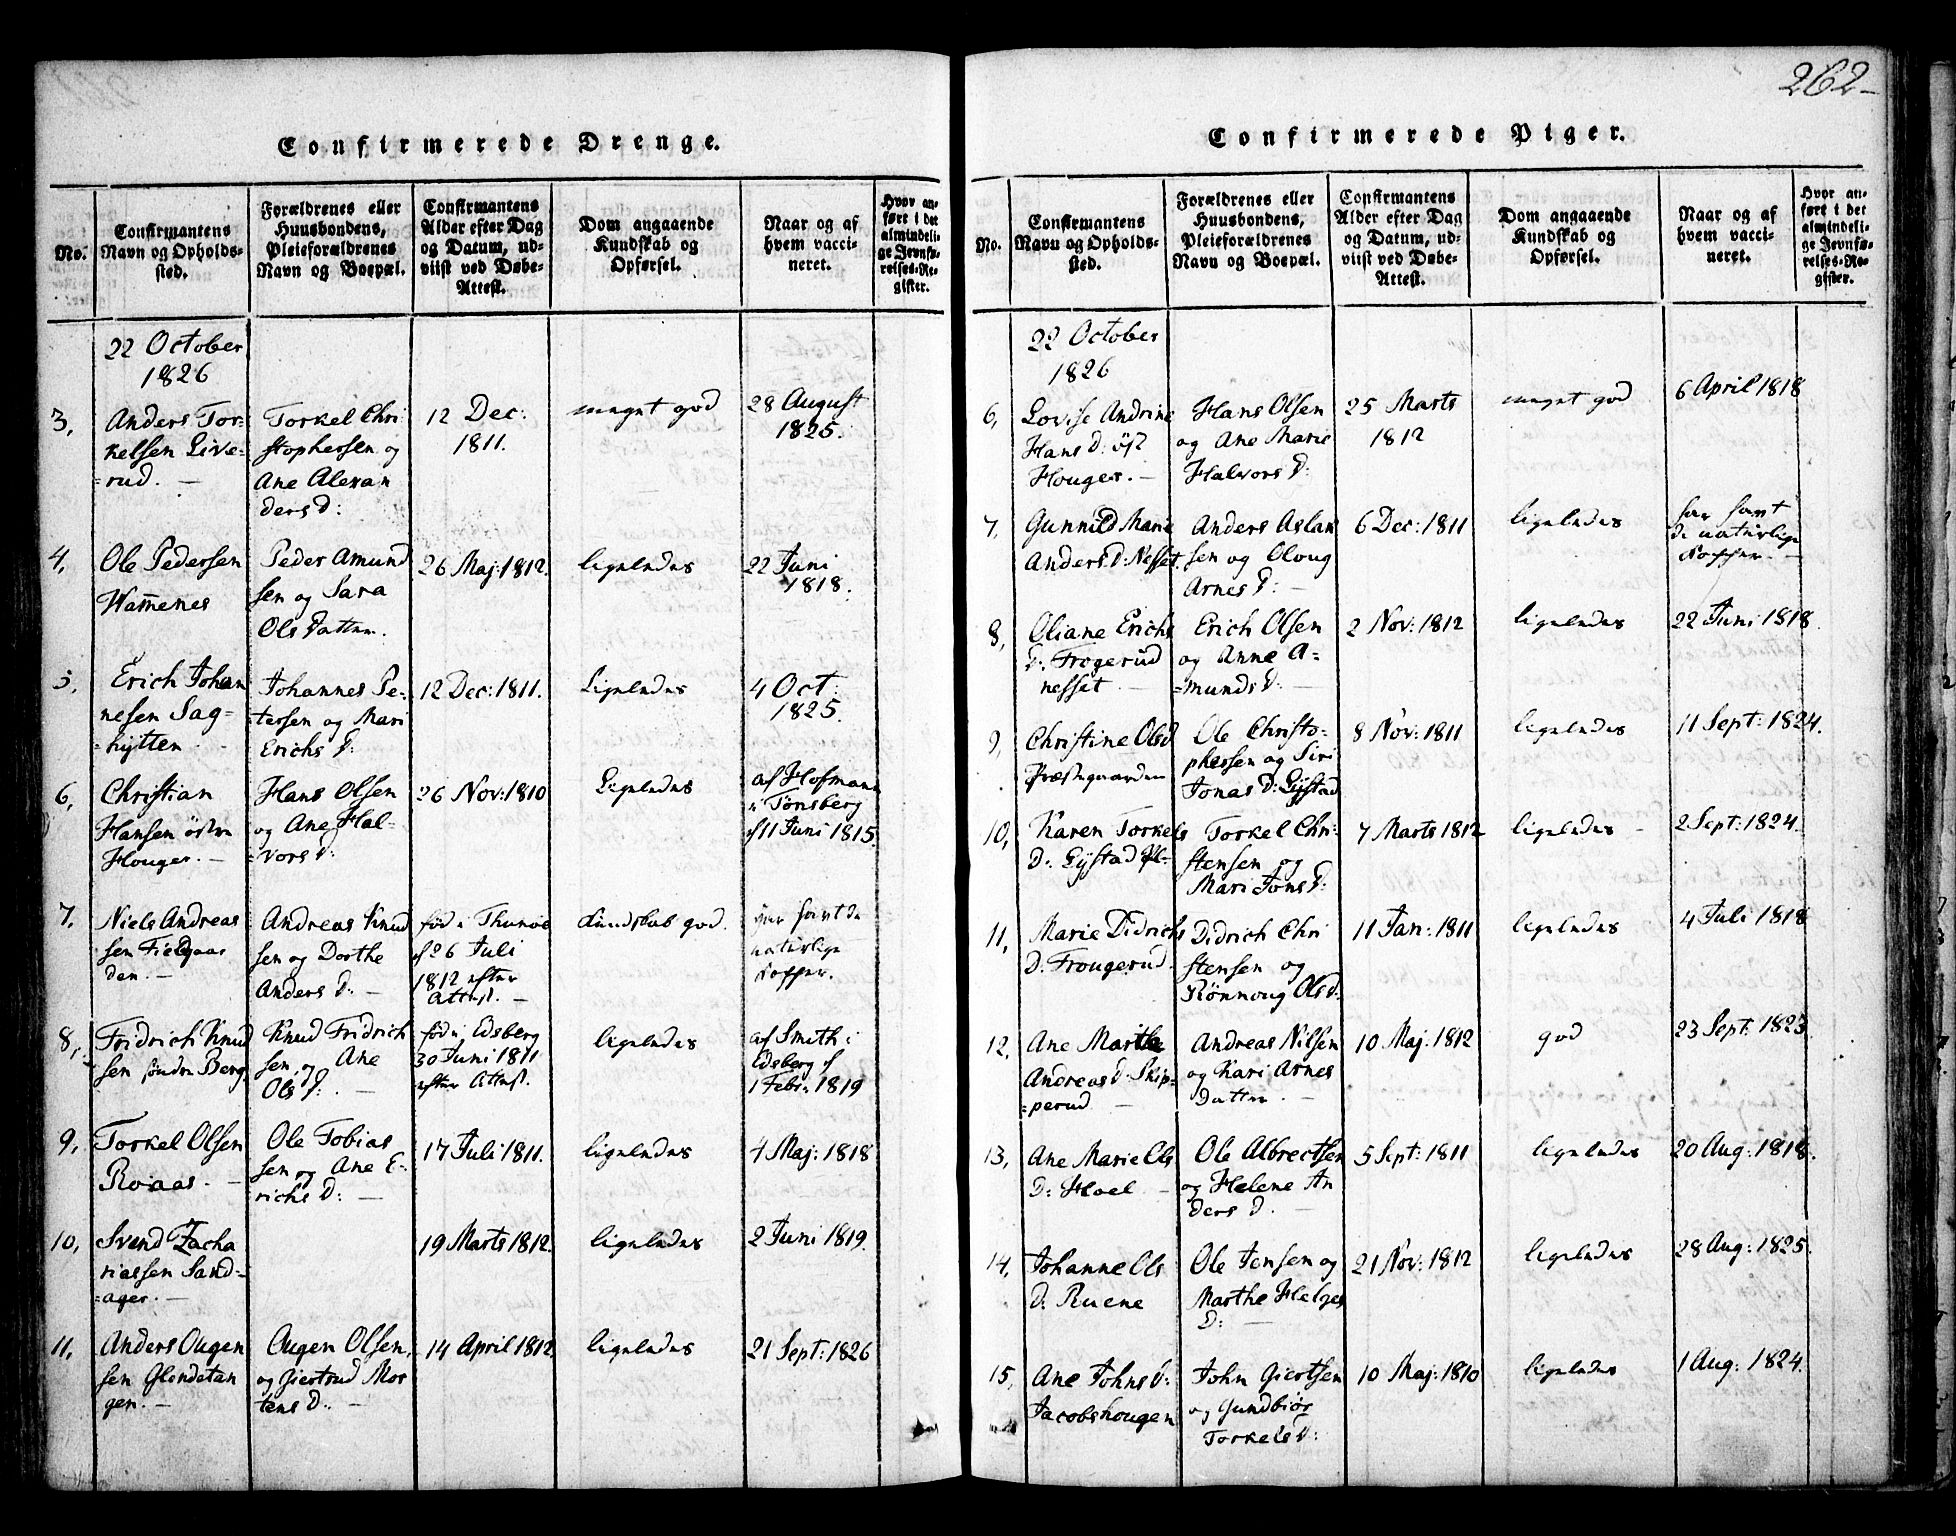 262-
Confirmerede Drenge.
No.
Confirmantens
Navn og Opholds-
sted.
Forældrenes eller
Huusbondens,
Pleieforældrenes
Navn og Boepæl.
Confirmantens
Alder efter Dag
og Datum, ud-
viist ved Døbe-
Attest.
Dom angaaende
Kundskab og
Opførsel.
Naar og af
hvem vacci-
neret.
Hvor an-
ført i det
almindeli-
ge Jevnfø-
relses-Re-
gister.
22 October
1826
3,
Anders Tor-
kelsen Live-
=rud. -
Torkel Chri
stophersen og
Ane Alexan
ders D:
12 Dec:
1811.
meget god
28 August
1825.
4,
Ole Pedersen
Hamenes
Peder Amund
sen og Sara
Ols Datter.
26 Maj: 1812.
ligeledes
22 Juni
1818.
5,
Erich Johan
nesen Sag-
=hytten.
Johannes Pe-
=tersen og Mari
Erichs D:
12 Dec: 1811.
Ligeledes
4 Oct:
1825.
6,
Christian
Hansen östre
Houger. -
Hans Olsen
og Ane Hal-
=vors D:
26 Nov: 1810
Ligeledes
af Hofmann
i Tönsberg
d 11 Juni 1815.
7,
Niels Andreas
sen Fieldgaar
den. -
Andreas Knud
sen og Dorthe
Anders D: -
föd i Thunöe
d 26 Juli
1812 efter
Attest. -
Kundskab god.
har havt de
naturlige
Kopper.
8,
Fridrich Knud
sen söndre Berg.
Knud Fridrich
sen og Ane
Ols D: -
föd i Edsberg
30 Juni 1811
efter Attest.
ligeledes
af Smith i
Edsberg d
1 Febr: 1819
9,
Torkel Olsen
Roaas. -
Ole Tobias
sen og Ane E-
richs D: -
17 Juli 1811.
ligeledes
4 Maj: 1818
10,
Svend Zacha
riassen Sand-
=ager. -
19 Marts 1812.
ligeledes
2 Juni 1819.
11,
Anders Ougen
sen Glendetan
gen. -
Ougen Olsen,
og Giertrud Mor
tens D: -
14 April 1812.
ligeledes
21 Sept: 1826
Confirmerede Piger.
No.
Confirmantens
Navn og Opholds-
sted.
Forældrenes eller
Huusbondens,
Pleieforældrenes
Navn og Boepæl.
Confirmantens
Alder efter Dag
og Datum, ud-
viist ved Døbe-
Attest.
Dom angaaende
Kundskab og
Opførsel.
Naar og af
hvem vacci-
neret.
Hvor an-
ført i det
almindeli-
ge Jevnfø-
relses-Re-
gister.
22 October
1826
6,
Lovise Andrine
Hans D: öst
Houger. -
Hans Olsen
og Ane Marie
Halvors D:
25 Marts
1812
meget god
6 April 1818
7,
Gunnild Marie
Anders D: Nesset.
Anders Aslak
sen og Oloug
Arnes D: -
6 Dec: 1811
ligeledes
har havt
de naturlige
Kopper. -
8,
Oliane Erichs
D: Frogerud
nesset -
Erich Olsen
og Anne A-
=munds D: -
2 Nov: 1812
ligeledes
22 Juni 1818.
9,
Christine Olsd
Præstegaarden
Ole Christo-
phersen og Siri
Jonas D: Eystad
8 Nov: 1811
ligeledes
11 Sept: 1824.
10,
Karen Torkels
D: Eystad
Torkel Chri-
stensen og
Mari Jons D:
7 Marts 1812
ligeledes -
2 Sept: 1824.
11,
Marie Didrichs
D. Frougerud.
Didrich Chri
stensen og
Rönnoug Ols D:
11 Jan: 1811
ligeledes
4 Juli 1818
12,
Ane Marthe
Andreas d: Skip-
=perud -
Andreas Nilsen
og Kari Arnes
datter. -
10 Maj: 1812
god
23 Sept: 1823.
13,
Ane Marie Ols
D: Hoel -
Ole Albrectsen
og Helene An
ders D. -
5 Sept: 1811
ligeledes
20 Aug: 1818.
14,
Johanne Ols
D. Ruene
Ole Jensen og
Marthe Helges
D: -
21 Nov: 1812
ligeledes
28 Aug: 1825.
15,
Ane Johns D:
Jacobshougen
John Giertsen
og Gundbiör
Torkels D:
10 Maj: 1810
ligeledes
1 Aug: 1824.